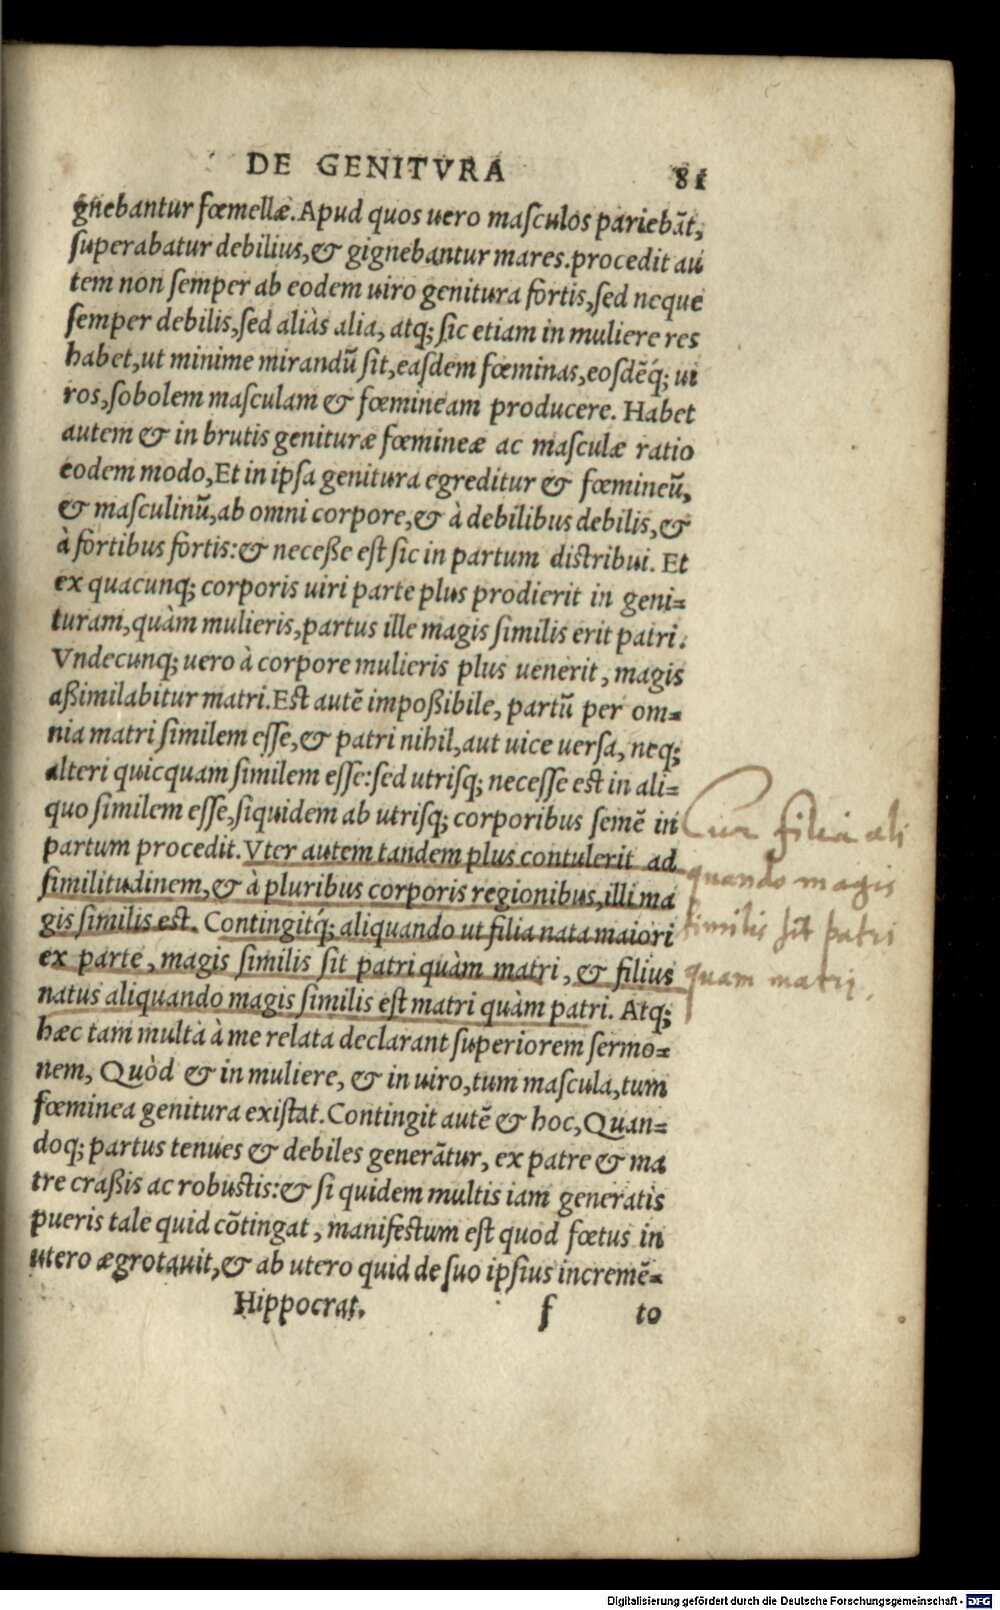 DE GENITVRA 81
gnebantur fœmellæ. Apud quos uero maſculos pariebãt,
ſuperabatur debilius, & gignebantur mares. procedit au
tem non ſemper ab eodem uiro genitura fortis, ſed neque
ſemper debilis, ſed aliàs alia, atq; ſic etiam in muliere res
habet, ut minime mirandũ ſit, eaſdem fœminas, eoſdẽq́; ui
ros, ſobolem maſculam & fœmineam producere. Habet
autem & in brutis genituræ fœmineæ ac maſculæ ratio
eodem modo, Et in ipſa genitura egreditur & fœmineũ,
& maſculinũ, ab omni corpore, & à debilibus debilis, &
à fortibus fortis: & neceße eſt ſic in partum diſtribui. Et
ex quacunq; corporis uiri parte plus prodierit in geni=
turam, quàm mulieris, partus ille magis ſimilis erit patri.
Vndecunq; uero à corpore mulieris plus uenerit, magis
aßimilabitur matri. Eſt autẽ impoßibile, partũ per om=
nia matri ſimilem eſſe, & patri nihil, aut uice uerſa, neq;
alteri quicquam ſimilem eſſe: ſed utriſq; neceſſe eſt in ali=
quo ſimilem eſſe, ſiquidem ab utriſq; corporibus ſemẽ in
partum procedit. Vter autem tandem plus contulerit ad
ſimilitudinem, & à pluribus corporis regionibus, illi ma
gis ſimilis eſt. Contingitq́; aliquando ut filia nata maiori
ex parte, magis ſimilis ſit patri quàm matri, & filius
natus aliquando magis ſimilis eſt matri quàm patri. Atq;
hæc tam multa à me relata declarant ſuperiorem ſermo=
nem, Quòd & in muliere, & in uiro, tum maſcula, tum
fœminea genitura exiſtat. Contingit autẽ & hoc, Quan=
doq; partus tenues & debiles generãtur, ex patre & ma
tre craßis ac robuſtis: & ſi quidem multis iam generatis
pueris tale quid cõtingat, manifeſtum eſt quod fœtus in
utero ægrotauit, & ab utero quid de ſuo ipſius incremẽ=
Hippocrat. f to
Cur filia ali
quando magis
similis sit patri
quam matri.
Digitalisierung gefördert durch die Deutsche Forschungsgemeinschaft - DFG